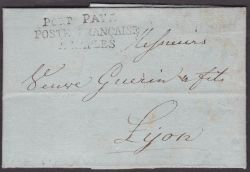 PORT PAYÉ
POSTE FRANÇAISE
A NAPLES
Messieurs
Veuve Guerin & fils
Lyon